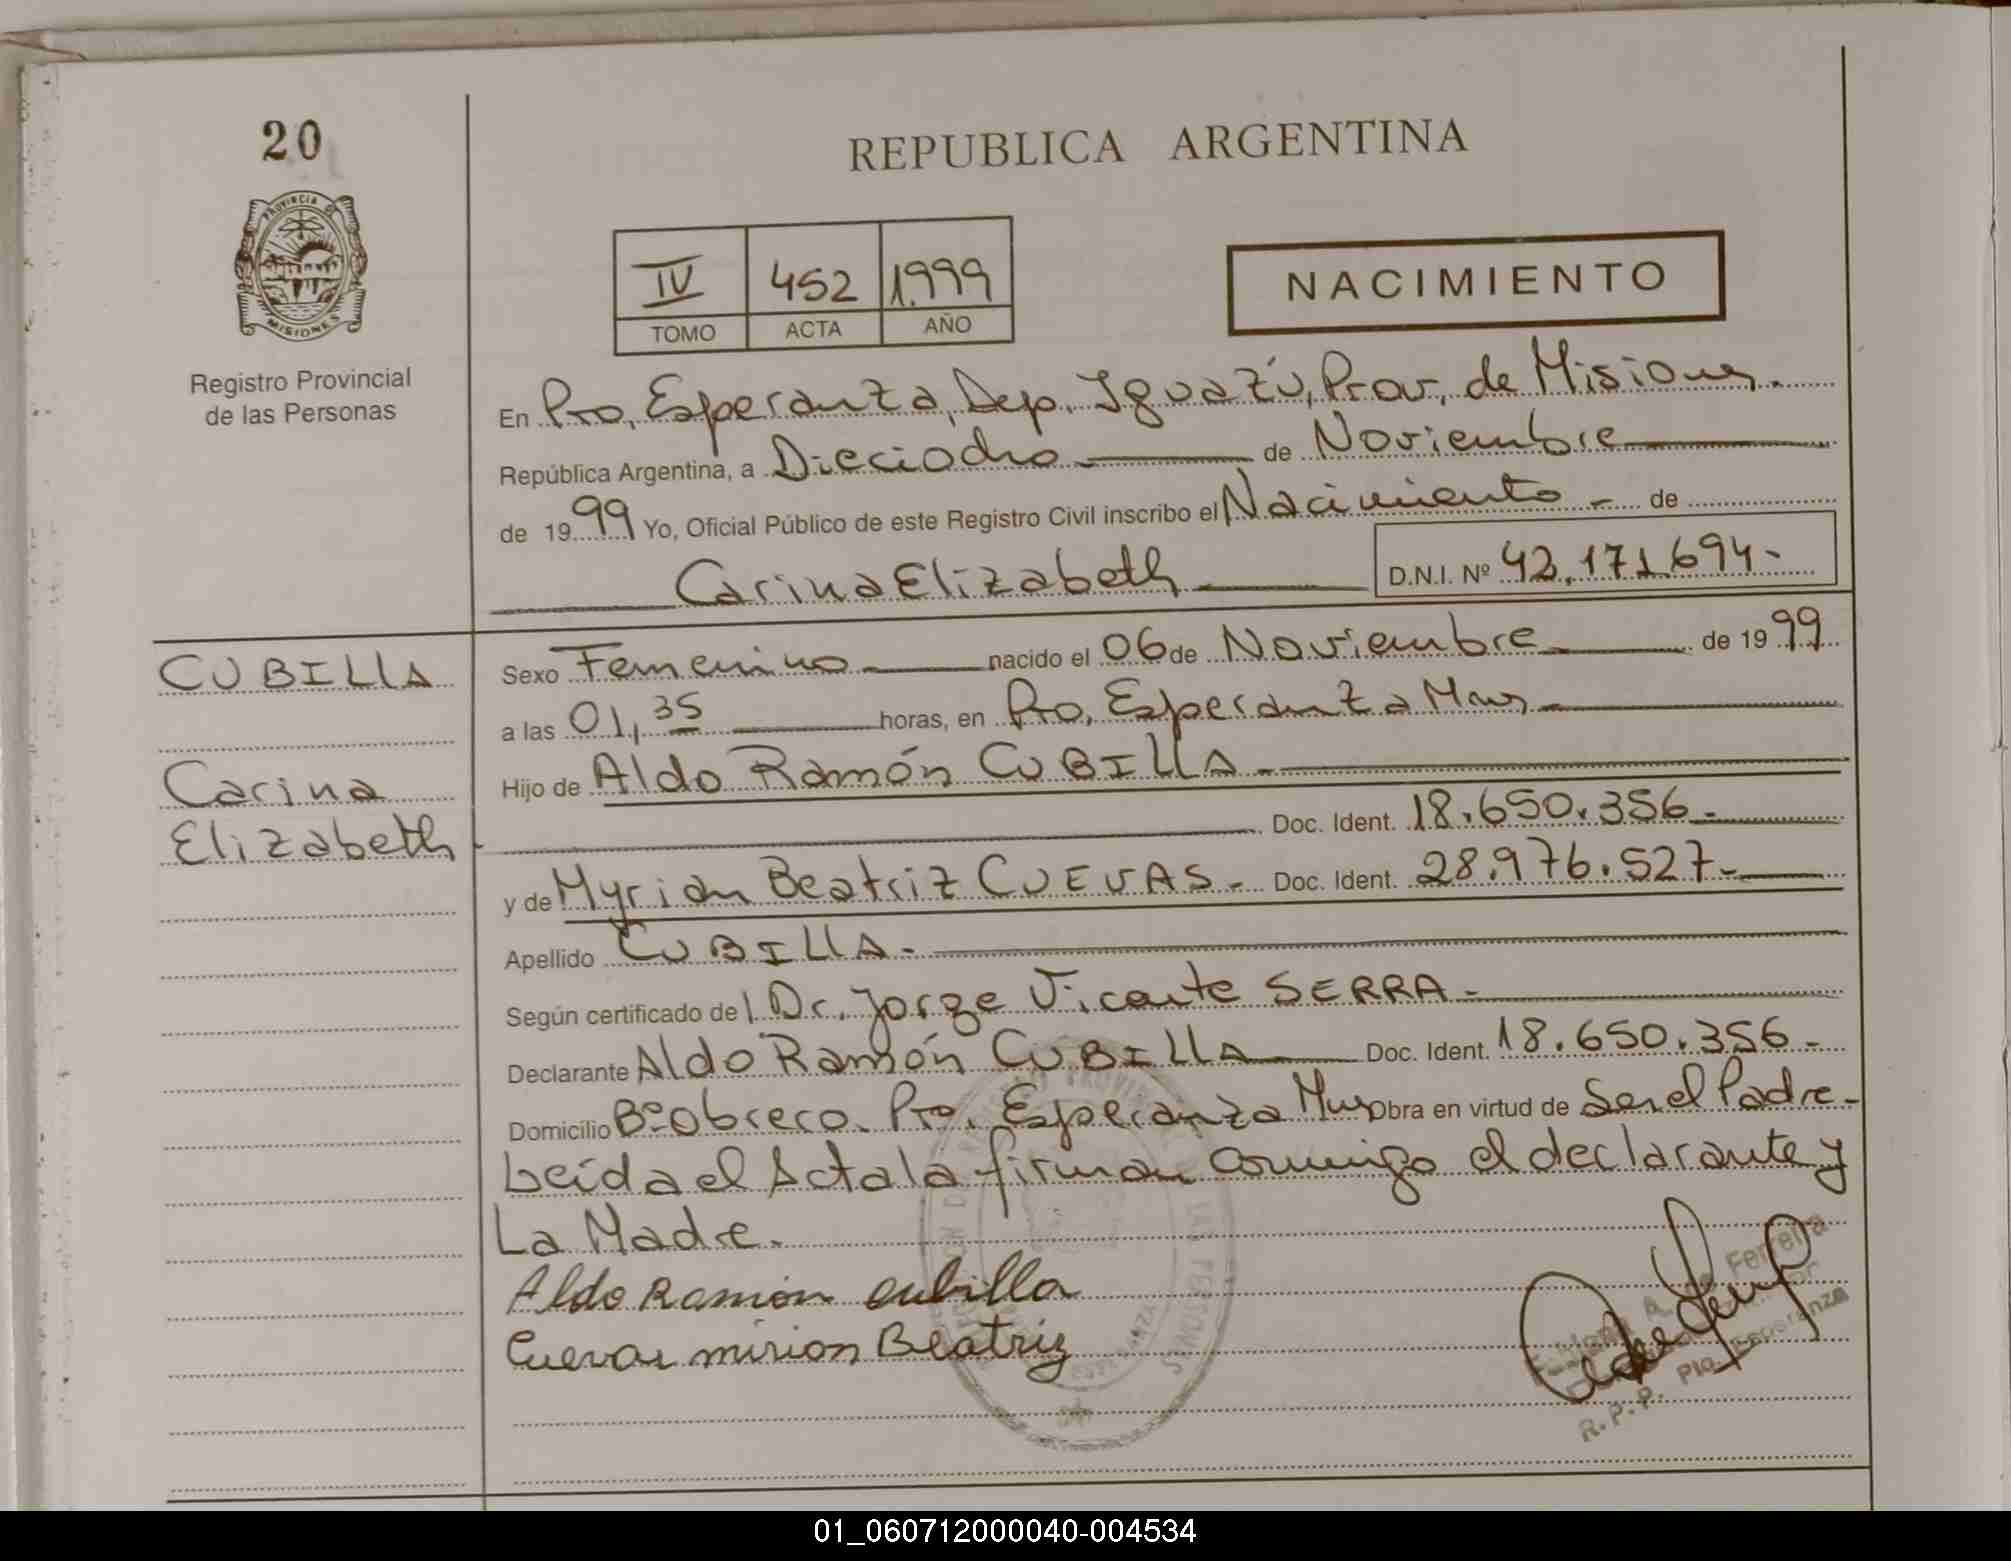 20
REPUBLICA ARGENTINA
PROVINCIA DE
MISIONES
Registro Provincial
de las Personas
IV 452 1.999
TOMO ACTA AÑO
NACIMIENTO
En Pto, Esperanza, Dep. Iguazú, Prov, de Misiones.
República Argentina, a Dieciocho de Noviembre
de 1999 Yo, Oficial Público de este Registro Civil inscribo el Nacimiento - de
Carina Elizabeth D.N.I. Nº 42.171.694-
CUBILLA
Carina
Elizabeth
Sexo Femenino nacido el 06 de Noviembre de 1999
a las 01,35 horas, en Pto, Esperanza Mnes
Hijo de Aldo Ramón CUBILLA
Doc. Ident. 18.650.356-
y de Myrian Beatriz CUEVAS- Doc. Ident. 28.976.527-
Apellido CUBILLA-
Según certificado del Dr. Jorge Vicente SERRA-
Declarante Aldo Ramón CUBILLA Doc. Ident. 18.650.356-
Domicilio Bº Obrero. Pto. Esperanza Mnes Obra en virtud de Ser el Padre-
Leída el Acta la firman conmigo el declarante y
La Madre.
Aldo Ramón cubilla
Cuevas mirion Beatriz
Ferreira
R.P.P. Pto. Esperanza
01_060712000040-004534